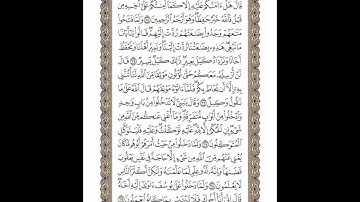 قَالَ هَلْ ءَامَنُكُمْ عَلَيْهِ إِلَّا كَمَا أَمِنتُكُمْ عَلَىٰ أَخِيهِ مِن
قَبْلُ فَاللَّهُ خَيْرٌ حَافِظًا وَهُوَ أَرْحَمُ الرَّاحِمِينَ ۝ وَلَمَّا فَتَحُوا
مَتَاعَهُمْ وَجَدُوا بِضَاعَتَهُمْ رُدَّتْ إِلَيْهِمْ قَالُوا يَا أَبَانَا
مَا نَبْغِي هَٰذِهِ بِضَاعَتُنَا رُدَّتْ إِلَيْنَا وَنَمِيرُ أَهْلَنَا وَنَحْفَظُ
أَخَانَا وَنَزْدَادُ كَيْلَ بَعِيرٍ ذَٰلِكَ كَيْلٌ يَسِيرٌ ۝ قَالَ
لَنْ أُرْسِلَهُ مَعَكُمْ حَتَّىٰ تُؤْتُونِ مَوْثِقًا مِّنَ اللَّهِ لَتَأْتُنَّنِي
بِهِ إِلَّا أَن يُحَاطَ بِكُمْ فَلَمَّا ءَاتَوْهُ مَوْثِقَهُمْ قَالَ اللَّهُ عَلَىٰ مَا
نَقُولُ وَكِيلٌ ۝ وَقَالَ يَا بَنِيَّ لَا تَدْخُلُوا مِن بَابٍ وَاحِدٍ
وَادْخُلُوا مِنْ أَبْوَابٍ مُّتَفَرِّقَةٍ وَمَا أُغْنِي عَنكُم مِّنَ اللَّهِ مِن
شَيْءٍ إِنِ الْحُكْمُ إِلَّا لِلَّهِ عَلَيْهِ تَوَكَّلْتُ وَعَلَيْهِ فَلْيَتَوَكَّلِ
الْمُتَوَكِّلُونَ ۝ وَلَمَّا دَخَلُوا مِنْ حَيْثُ أَمَرَهُمْ أَبُوهُم مَّا كَانَ
يُغْنِي عَنْهُم مِّنَ اللَّهِ مِن شَيْءٍ إِلَّا حَاجَةً فِي نَفْسِ يَعْقُوبَ
قَضَاهَا وَإِنَّهُ لَذُو عِلْمٍ لِّمَا عَلَّمْنَاهُ وَلَٰكِنَّ أَكْثَرَ النَّاسِ
لَا يَعْلَمُونَ ۝ وَلَمَّا دَخَلُوا عَلَىٰ يُوسُفَ ءَاوَىٰ إِلَيْهِ أَخَاهُ
قَالَ إِنِّي أَنَا أَخُوكَ فَلَا تَبْتَئِسْ بِمَا كَانُوا يَعْمَلُونَ ۝